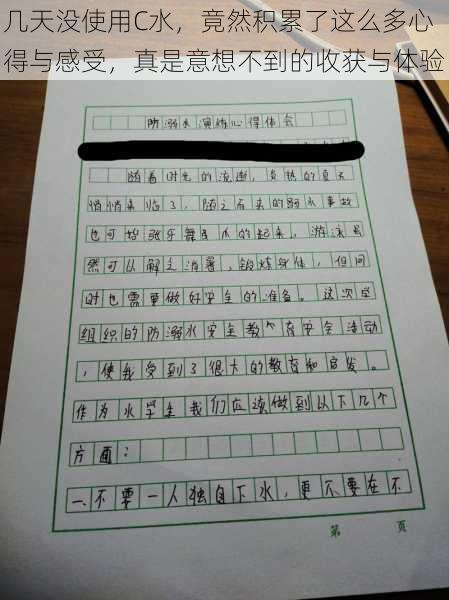 几天没使用C水，竟然积累了这么多心
得与感受，真是意想不到的收获与体验
防溺水演练心得体会
随着时光的流逝，炎热的夏天
悄悄来临了，随之而来的溺水事故
也开始张牙舞爪的起来，游泳虽
然可以解乏消暑，锻炼身体，但同
时也需要做好安全的准备。这次学
组织的防溺水安全教育安全活动
，使我受到了很大的教育和启发。
作为小学生我们应该做到以下几个
方面：
一、不要一人独自下水，更不要在不
第 页